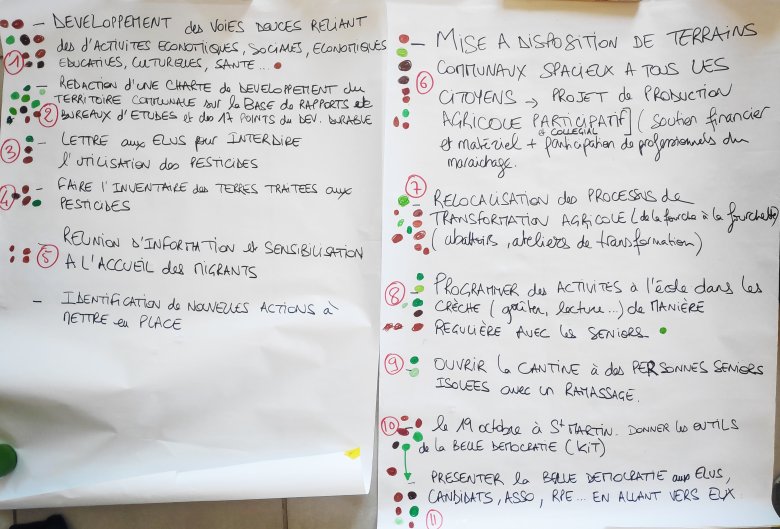 - DEVELOPPEMENT des VOIES DOUCES RELIANT
des d'ACTIVITES ECONOMIQUES, SOCIALES, ECONOMIQUES
① EDUCATIVES, CULTURELLES, SANTE...
- REDACTION D'UNE CHARTE de DEVELOPPEMENT du
TERRITOIRE COMMUNALE sur la BASE de RAPPORTS et de
② BUREAUX D'ETUDES et des 17 POINTS du DEV. DURABLE
③ - LETTRE aux ELUS pour INTERDIRE
l'UTILISATION des PESTICIDES
④ - FAIRE l'INVENTAIRE des TERRES TRAITEES aux
PESTICIDES
⑤ REUNION D'INFORMATION et SENSIBILISATION
A L'ACCUEIL des MIGRANTS
- IDENTIFICATION de NOUVELLES ACTIONS à
METTRE en PLACE
- MISE A DISPOSITION DE TERRAINS
COMMUNAUX SPACIEUX A TOUS LES
⑥ CITOYENS → PROJET de PRODUCTION
AGRICOLE PARTICIPATIF] (soutien financier
et COLLEGIAL
et matériel + participation de professionnels du
maraichage.
⑦
- RELOCALISATION des PROCESSUS de
TRANSFORMATION AGRICOLE (de la fourche à la fourchette)
(abattoirs, ateliers de transformation)
⑧ - PROGRAMMER des ACTIVITES à l'école dans les
CRÈCHE (goûter, lecture...) de MANIÈRE
REGULIÈRE AVEC les SENIORS
⑨ - OUVRIR la CANTINE à des PERSONNES SENIORS
ISOLEES avec un RAMASSAGE.
⑩ - le 19 octobre à St MARTIN. DONNER les OUTILS
de la BELLE DEMOCRATIE (KIT)
- PRESENTER la BELLE DEMOCRATIE aux ELUS,
CANDIDATS, ASSO, RPE... EN ALLANT VERS EUX
⑪